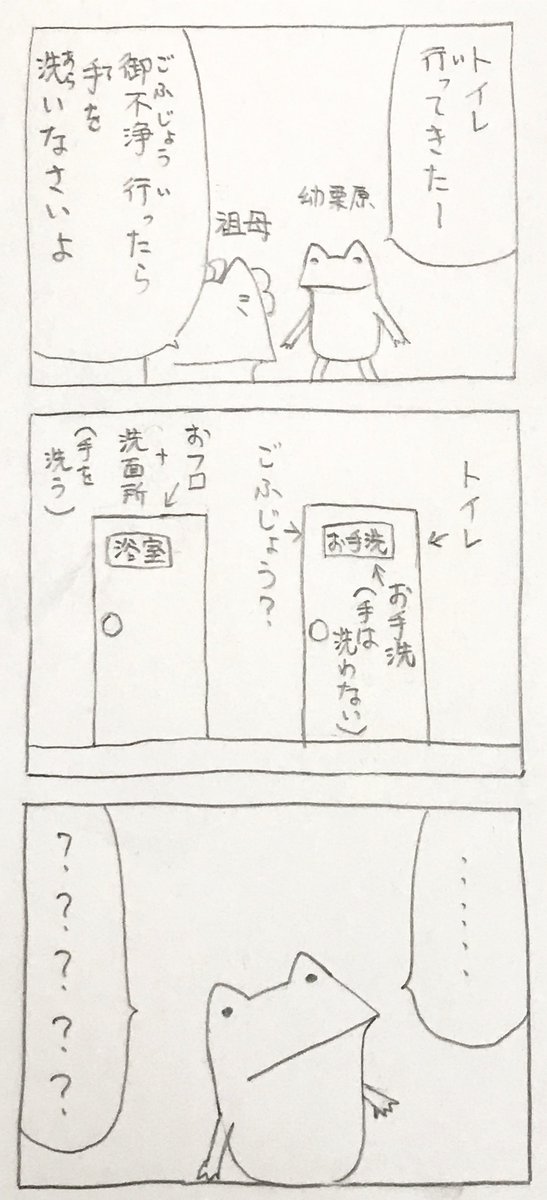 トイレ
行ってきたー
幼栗原
祖母
御不浄行ったら
手を
洗いなさいよ
トイレ
お手洗
お手洗
(手は
洗わない)
ごふじょう?
おフロ
+
洗面所
(手を
洗う)
浴室
......
?????